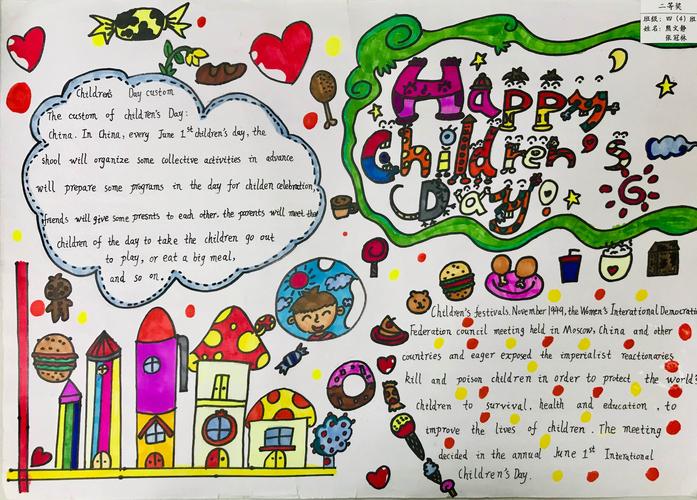 二等奖
班级：四（4）班
姓名：熊文静
张冠林
Happy
Children's
Day!
Children's Day custom
The custom of children's Day:
China. In China, every June 1st children's day, the
shool will organize some collective activities in advance
will prepare some programs in the day for childen celebration,
friends will give some presnts to each other. the parents will meet the
children of the day to take the children go out
to play, or eat a big meal,
and so on.
Children's festivals. November 1949, the Women's International Democratic
Federation council meeting held in Moscow, China and other
countries and eager exposed the imperialist reactionaries
kill and poison children in order to protect the world's
Children to survival, health and education, to
improve the lives of children. The meeting
decided in the annual June 1st Interational
Children's Day.